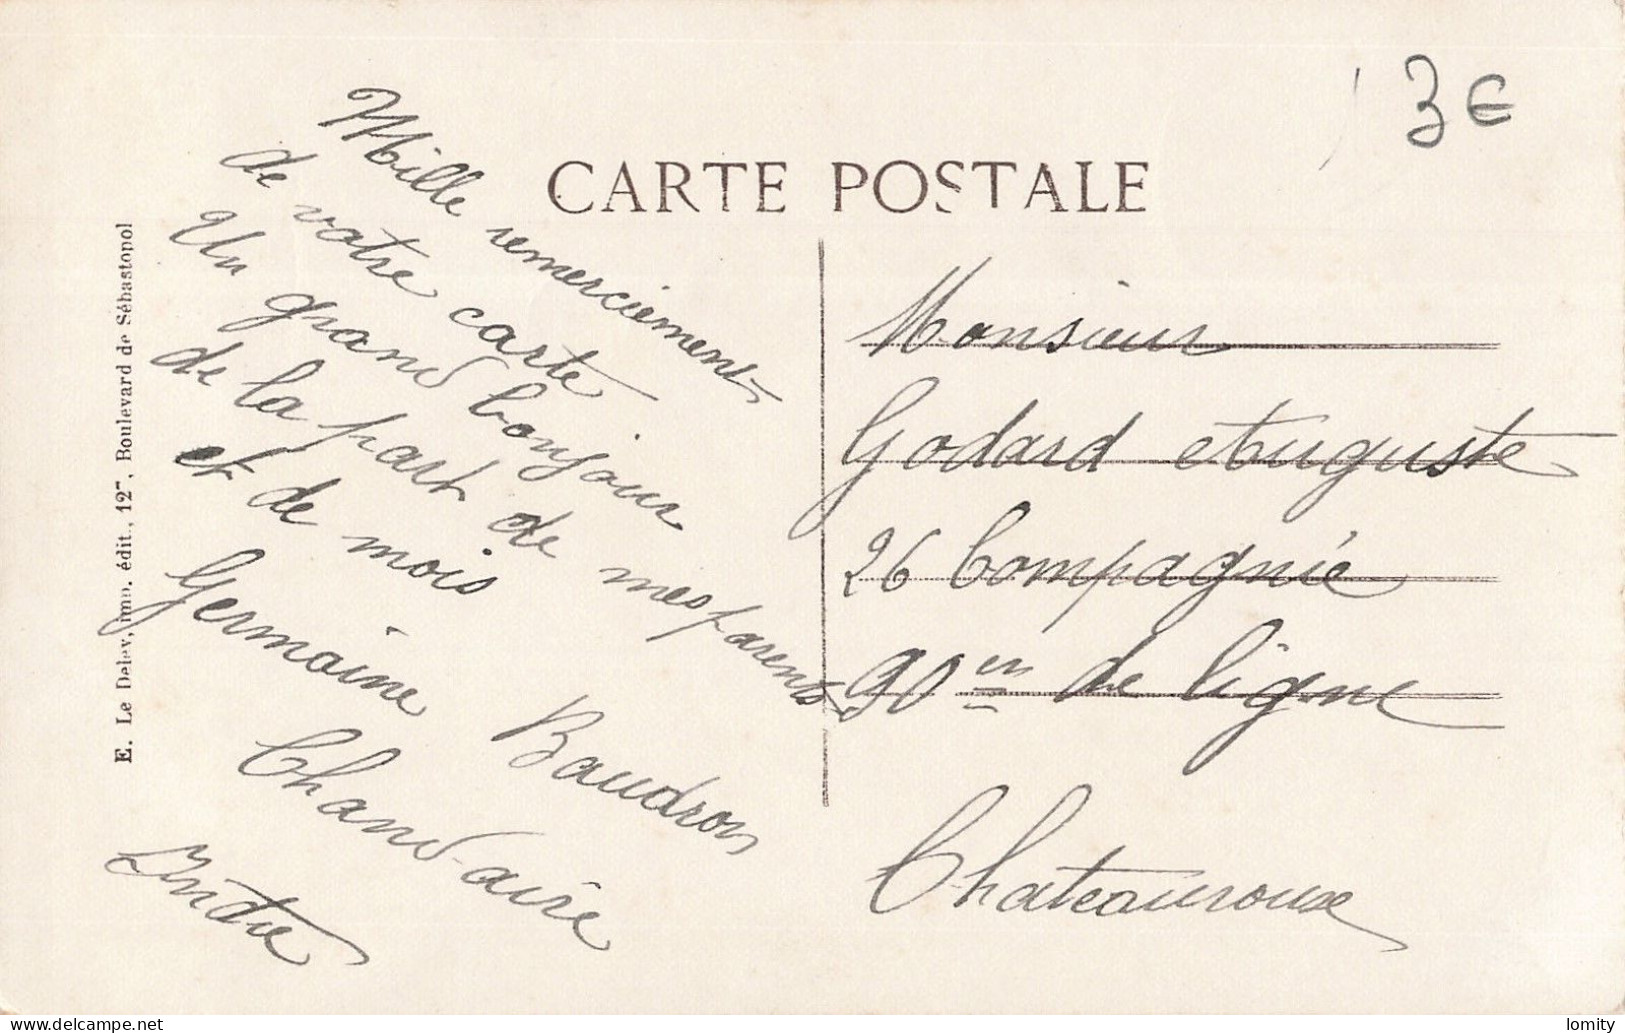 3 €
CARTE POSTALE
Mille remerciements
de votre carte
Un grand bonjour
de la part de mes parents
et de mois
Germaine Baudron
Chand-aire
Indre
Monsieur
Godard Auguste
26 Compagnie
90en de ligne
Chateauroux
E. Le Deley, imp. édit., 127, Boulevard de Sébastopol
delcampe.net
lomity